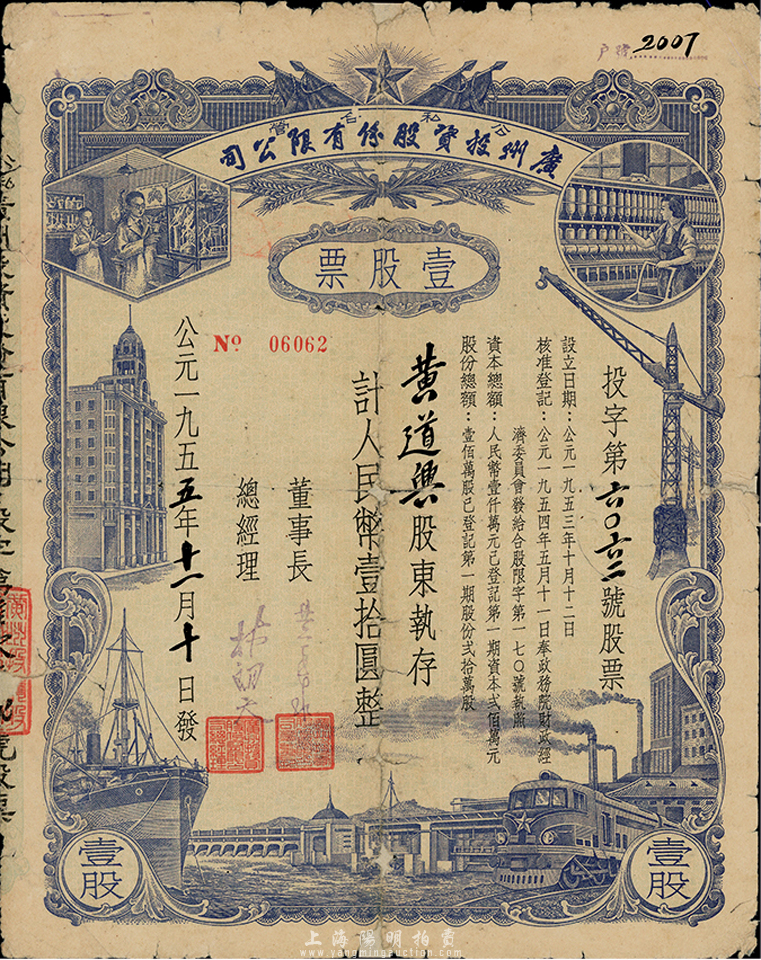 戶號 2007
公私合營
廣州投資股份有限公司
壹股票
№ 06062
投字第六〇六二號股票
設立日期：公元一九五三年十月十二日
核准登記：公元一九五四年五月十一日奉政務院財政經
濟委員會發給合股限字第一七〇號執照
資本總額：人民幣壹仟萬元已登記第一期資本弍佰萬元
股份總額：壹佰萬股已登記第一期股份弍拾萬股
黃道興股東執存
計人民幣壹拾圓整
董事長
總經理
公元一九五五年十一月十日發
壹股
壹股
上海陽明拍賣
www.yangmingauction.com